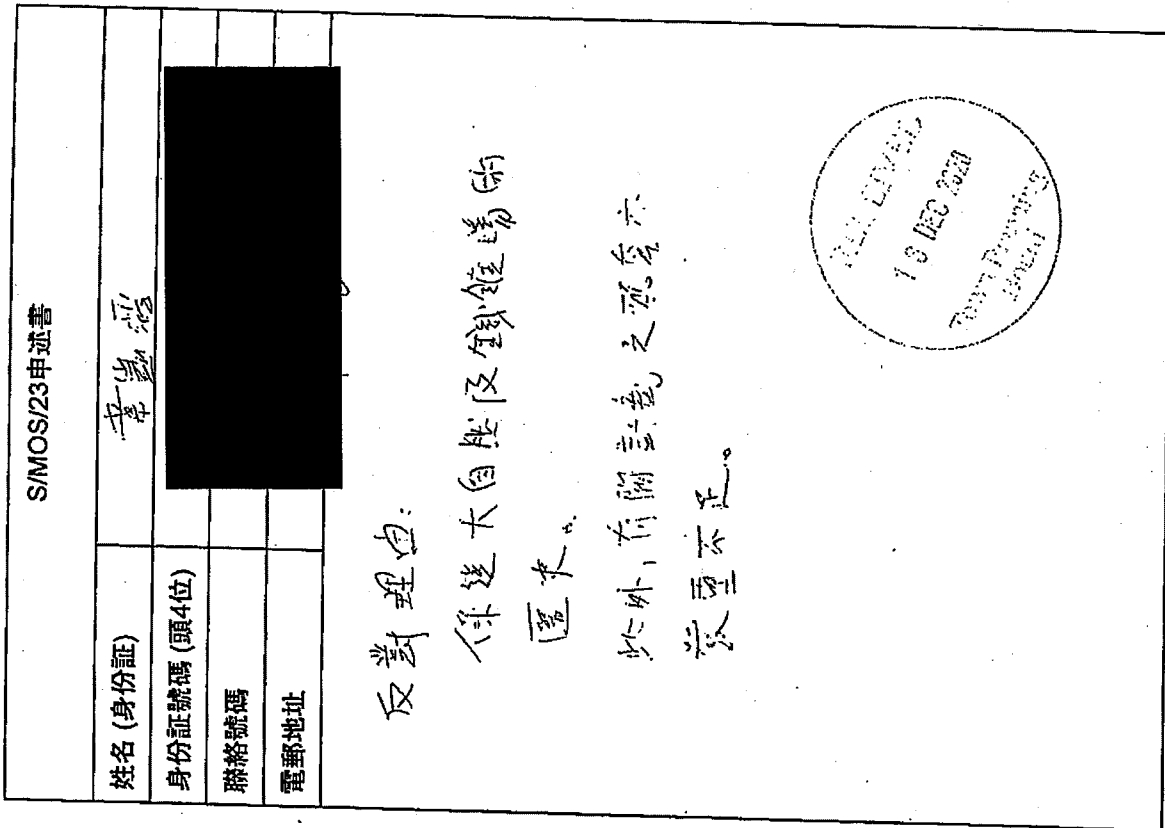 S/MOS/23申述書
姓名 (身份証)
身份証號碼 (頭4位)
聯絡號碼
電郵地址
反對理由:
大自然及
此外,有關計劃之配套亦
嚴重不足。
RECEIVED
18 DEC 2020
Town Planning
Board